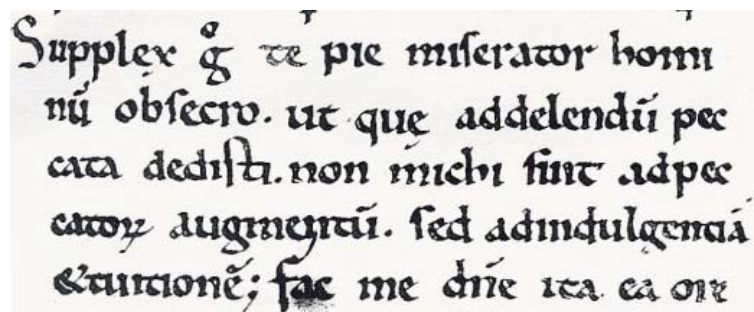 Supplex gͦ te pie miserator homi
nū obsecro. ut que addelendū pec
cata dedisti. non michi sint adpec
catoꝝ augmentū. sed adindulgentiā
&tuitionē; fac me dn̄e ita ea ore